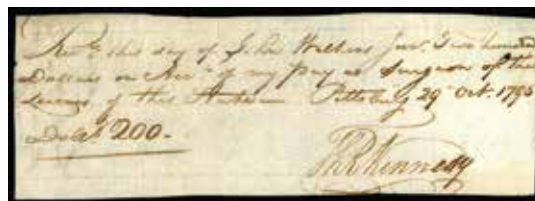 Rec'd this day of John Wilkins Junr. Two hundred
Dollars on Acct. of my pay as Surgeon of the
of the Pittsburg 29 Oct. 1795
Dolls. 200.-
Kennedy